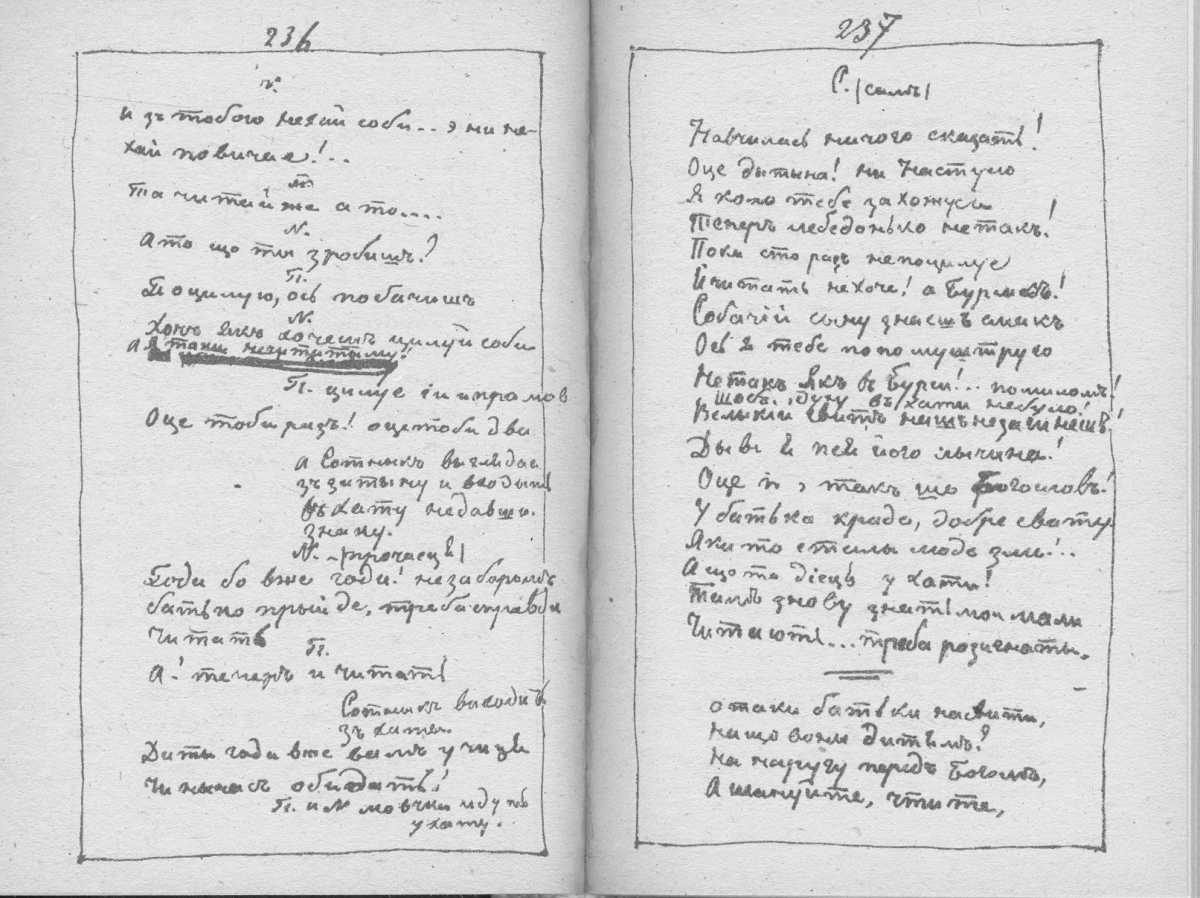 236
и зъ тобою нехай соби.. э ни не-
хай повичае!..
П.
Та читай же а то....
N.
А то що ты зробишъ?
П.
Поцилую, ось побачишъ
N.
Хочъ
хочешъ цилуй соби
а я таки нечитатыму!
П. цилуе іи и промов
Оце тоби разъ! оце тоби два
а Сотныкъ выгляда
зъ за тыну и входыть
въ хату недавши
знаку.
N. (пручаецця)
Годи бо вже годи! незабаромъ
батько прыйде, треба справди
Читать
П.
А! теперъ и читать
Сотныкъ выходить
зъ хаты.
Диты годи вже вамъ учицця
Чи нычасъ обидать!
П. и N мовчки идуть
у хату.
237
С. (самъ)
Навчилась ничого сказать!
Оце дытына! ни Настуню
Я коло тебе захожусь
Теперъ лебедонько не такъ!
Поки сто разъ непоцилуе
Й читать нехоче! а Бурлакъ!
Собачій сыну знаешъ смакъ
Ось я тебе помуштрую
Нетакъ якъ въ Бурси!.. помиломъ!
Щобъ духу въ хати небуло!
Велыкий свитъ нашъ незагинешъ!
Дывъ й пей його лычина!
Оце и э такъ що Богословъ!
У батька краде, добре сваты
Яки то сталы люде злы!..
А що то діецця у хати?
Тамъ знову знать мои мали
Читають... треба розигнаты.
отаки батьки на свити,
На що воны дитямъ?
На наругу передъ Богомъ,
А шануйте, чтите,